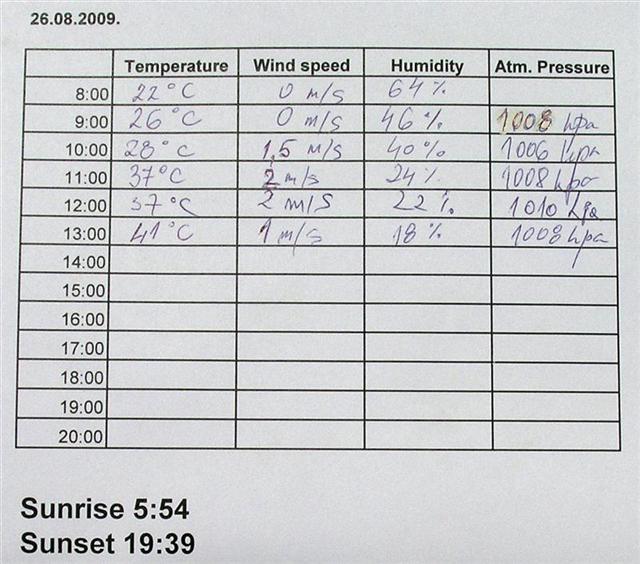 26.08.2009.
Temperature Wind speed Humidity Atm. Pressure
8:00 22°C 0 m/s 64%
9:00 26°C 0 m/s 46% 1008 hpa
10:00 28°C 1,5 m/s 40% 1006 hpa
11:00 37°C 2 m/s 24% 1008 hpa
12:00 37°C 2 m/s 22% 1010 hpa
13:00 41°C 1 m/s 18% 1008 hpa
14:00
15:00
16:00
17:00
18:00
19:00
20:00
Sunrise 5:54
Sunset 19:39